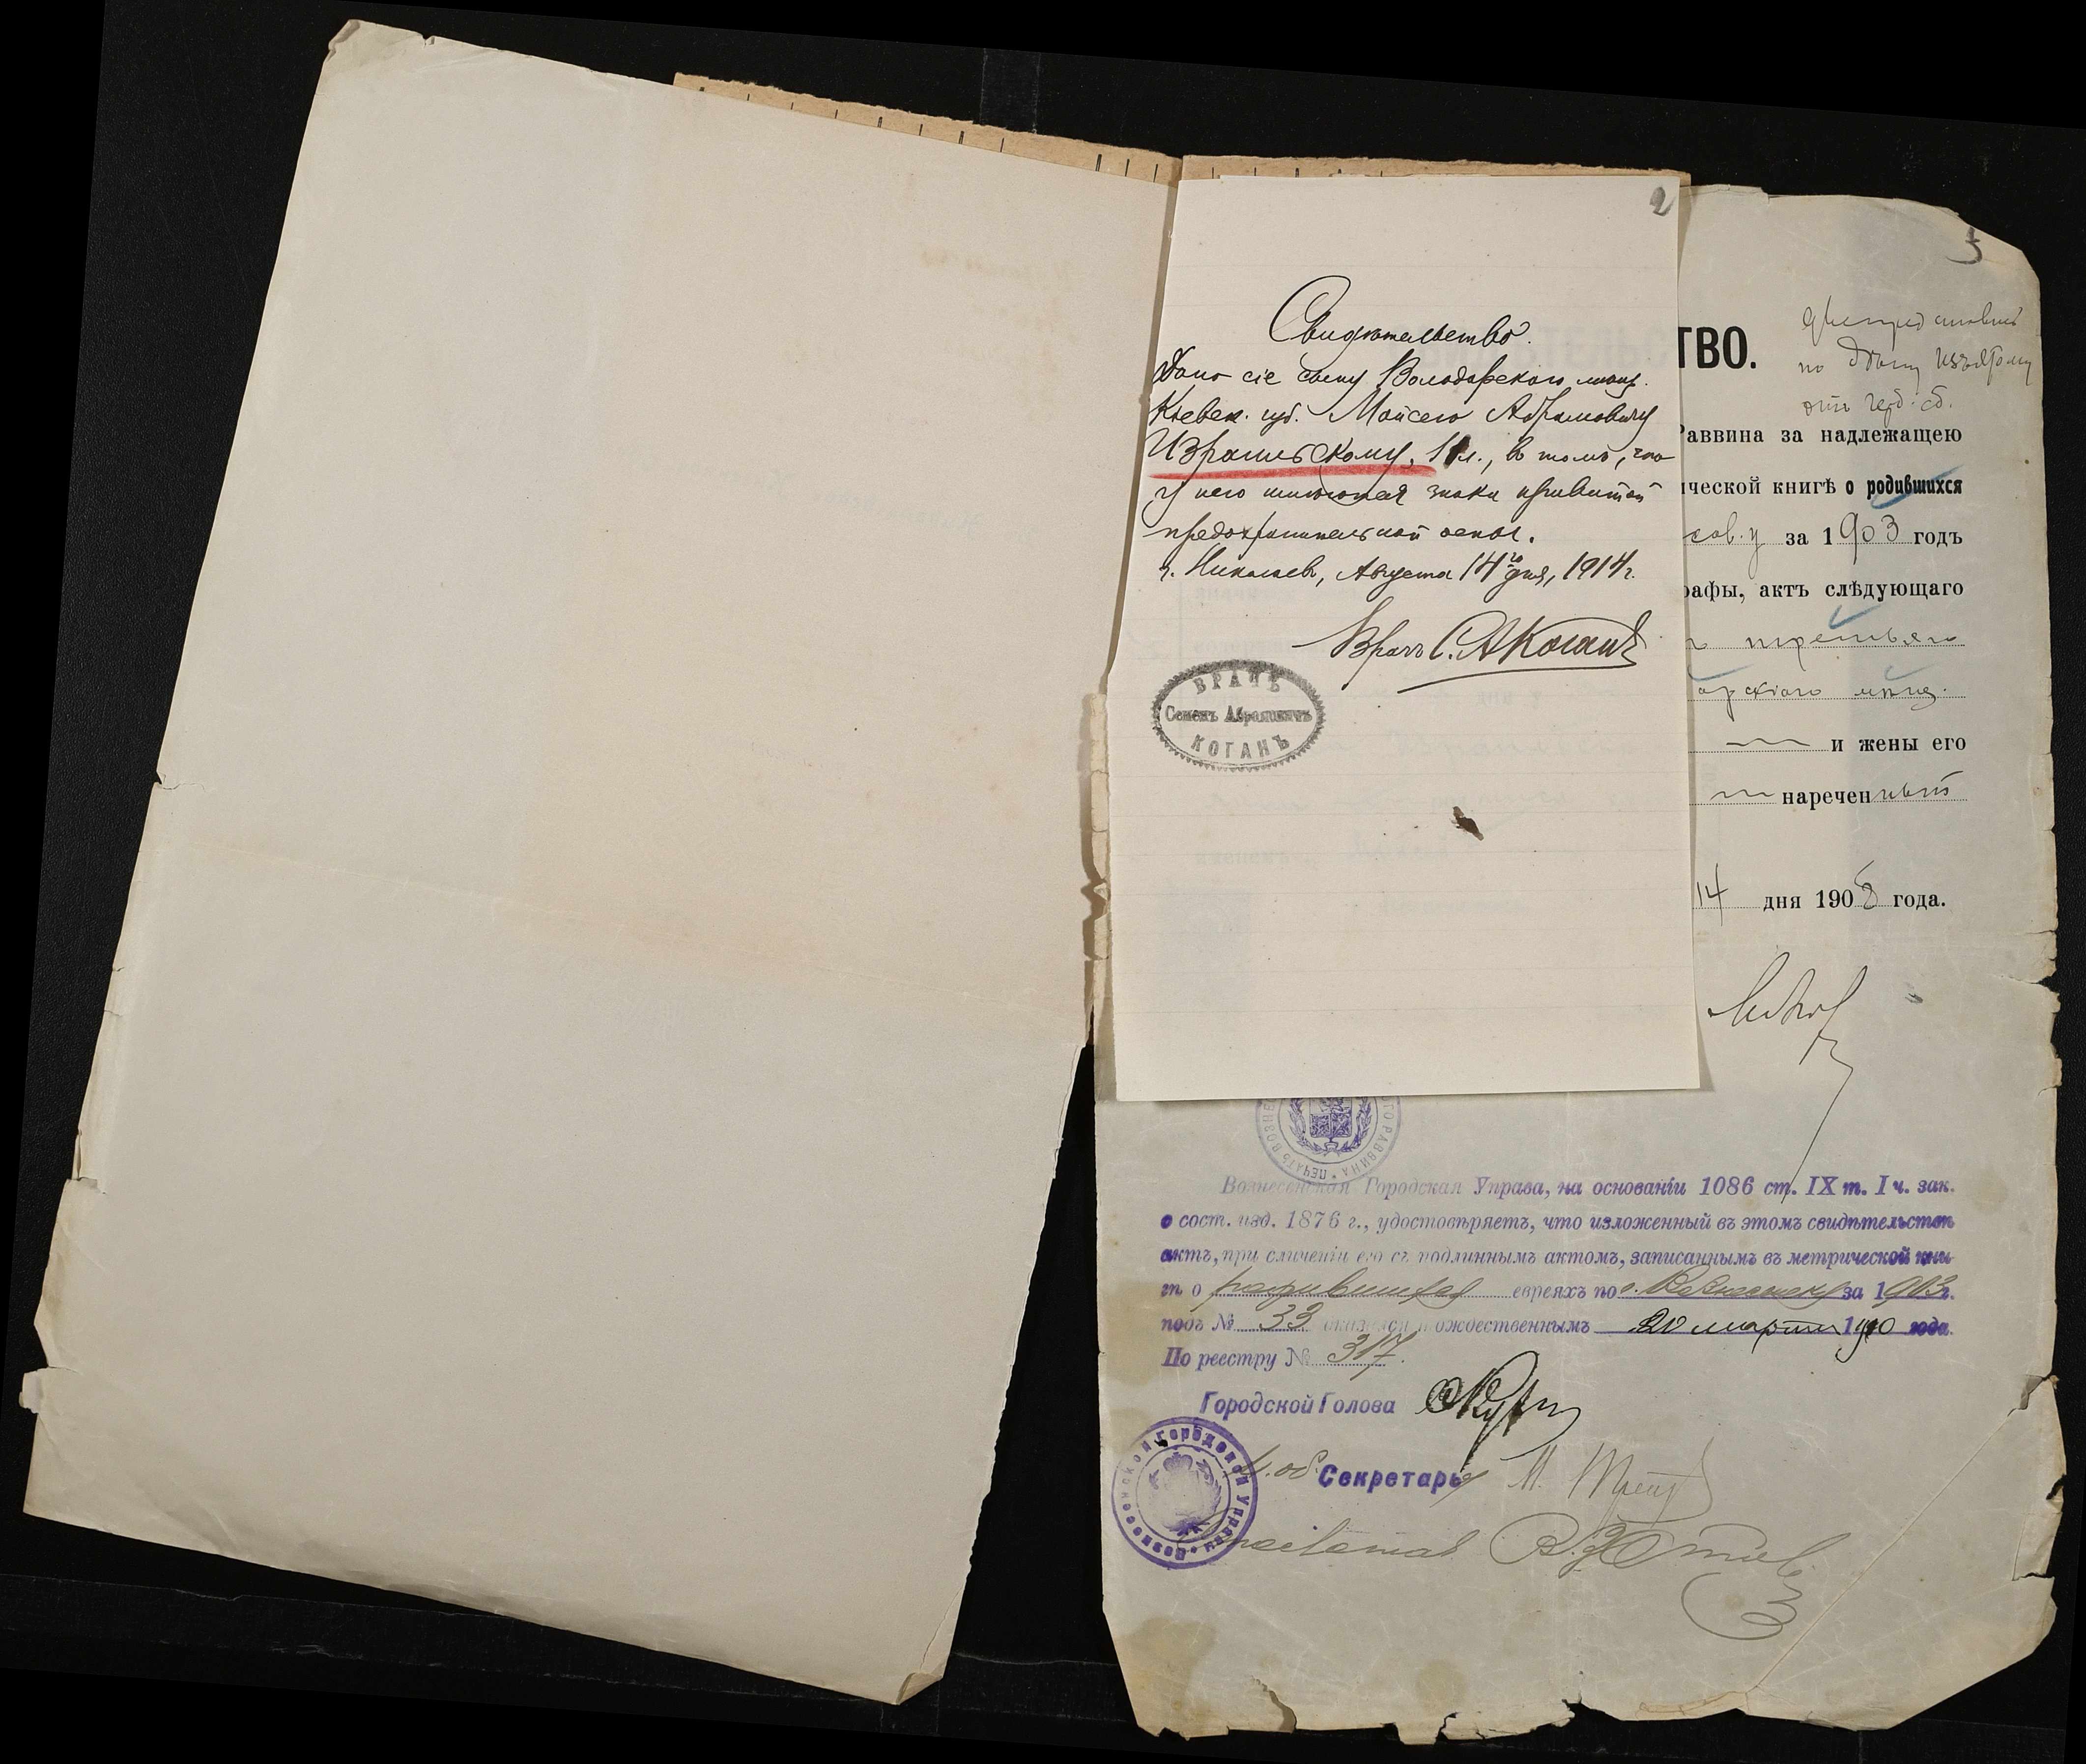 2
Свидѣтельство.
Дано сіе сыну Володарскаго мѣщ.
Кіевск. губ. Мойсею Абрамовичу
Израильскому, 11 л., въ томъ, что
у него имѣются знаки привитой
предохранительной оспы.
г. Николаевъ, Августа 14го дня, 1914 г.
Врачъ С. А. Коганъ
ВРАЧЪ
Семенъ Абрамовичъ
КОГАНЪ
5
ТВО.
по
изъятому
отъ герб. сб.
Раввина за надлежащею
ической книгѣ о родившихся
за 1903 годъ
рафы, актъ слѣдующаго
третьяго
арскаго мѣщ.
и жены его
наречен
14 дня 1908 года.
ПЕЧАТЬ ВОЗНЕ ГО РАВВИНА
Вознесенская Городская Управа, на основаніи 1086 ст. IX т. I ч. зак.
о сост. изд. 1876 г., удостовѣряетъ, что изложенный въ этомъ свидѣтельствѣ
актъ, при сличеніи его съ подлиннымъ актомъ, записаннымъ въ метрической кни-
гѣ о родившихся евреяхъ по г. Вознесенску за 1903 г.
подъ № 33 оказался тождественнымъ 20 марта 1910 года.
По реестру № 317.
Городской Голова
И. об. Секретаря
Вознесенской Городской Управы